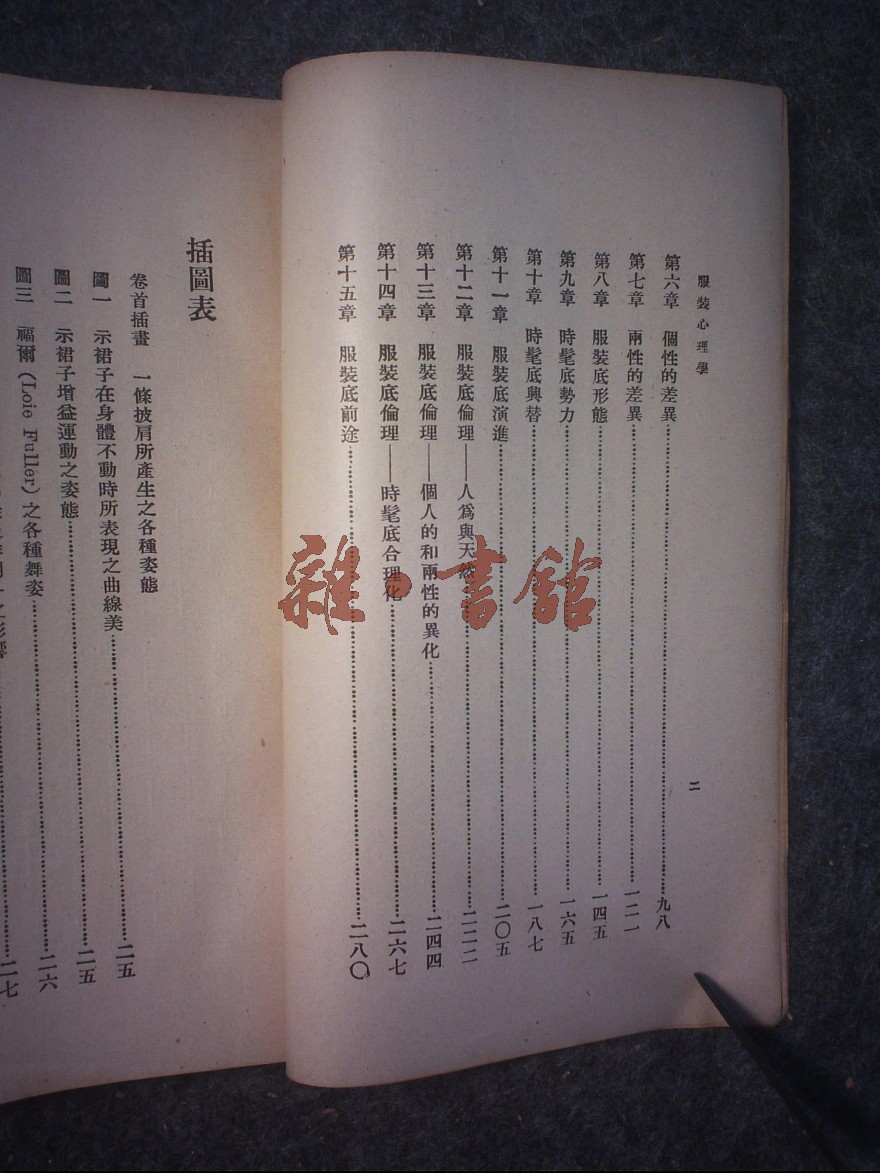 服裝心理學
二
第六章 個性的差異……九八
第七章 兩性的差異……一二一
第八章 服裝底形態……一四五
第九章 時髦底勢力……一六五
第十章 時髦底興替……一八七
第十一章 服裝底演進……二〇五
第十二章 服裝底倫理——人爲與天然……二二二
第十三章 服裝底倫理——個人的和兩性的異化……二四四
第十四章 服裝底倫理——時髦底合理化……二六七
第十五章 服裝底前途……二八〇
插圖表
卷首插畫 一條披肩所產生之各種姿態
圖一 示裙子在身體不動時所表現之曲線美……二五
圖二 示裙子增益運動之姿態……二五
圖三 福爾(Loie Fuller)之各種舞姿……二六
二七
雜·書館